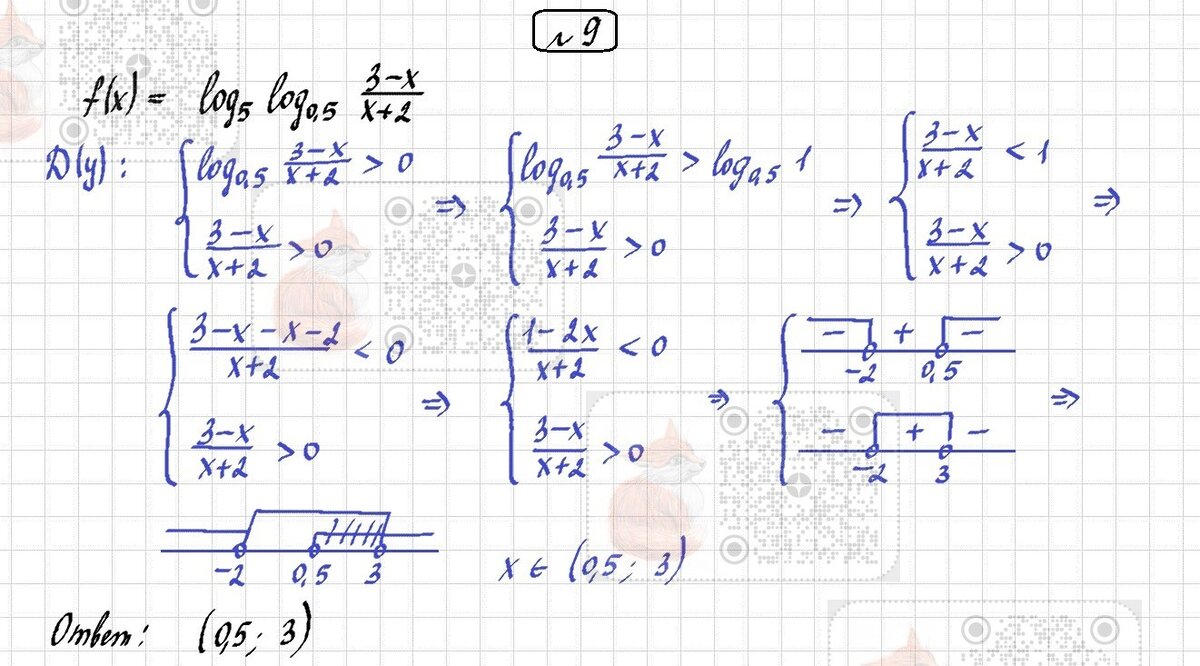 № 9
f(x) = log₅ log₀,₅ (3-x)/(x+2)
D(y): { log₀,₅ (3-x)/(x+2) > 0 ; (3-x)/(x+2) > 0 ⇒ { log₀,₅ (3-x)/(x+2) > log₀,₅ 1 ; (3-x)/(x+2) > 0 ⇒ { (3-x)/(x+2) < 1 ; (3-x)/(x+2) > 0 ⇒
{ (3-x-x-2)/(x+2) < 0 ; (3-x)/(x+2) > 0 ⇒ { (1-2x)/(x+2) < 0 ; (3-x)/(x+2) > 0 ⇒ { - + - -2 0,5 ; - + - -2 3 ⇒
-2 0,5 3 x ∈ (0,5; 3)
Ответ: (0,5; 3)